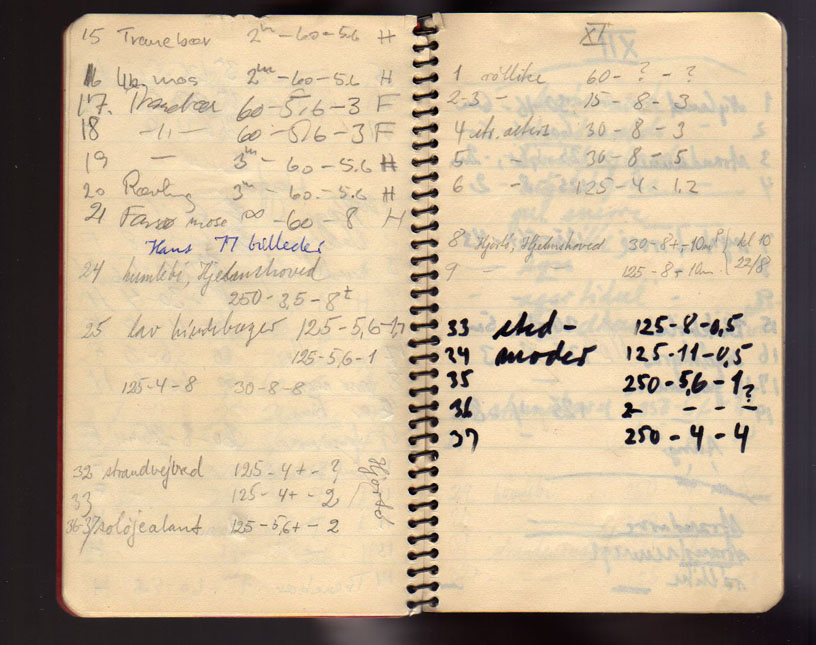 15 Tranebær 2m - 60 - 5.6 H
16 mos 2m - 60 - 5.6 H
17. Tranebær 60 - 5,6 - 3 F
18 -11- 60 - 5,6 - 3 F
19 — 3m - 60 - 5.6 H
20 Revling 3m - 60 - 5.6 H
21 mose ∞ - 60 - 8 H
Hans 77 billeder
24 humlebi, Hjelmshoved
250 - 3,5 - 8
25 lav 125 - 5,6 -
125 - 5,6 - 1
125 - 4 - 8 30 - 8 - 8
32 strandvejbred 125 - 4+ - ?
33 125 - 4+ - 2
36-37 soløjealant 125 - 5,6+ - 2
XI
1 röllike 60 - ? - ?
2-3 - 15 - 8 - 3
4 30 - 8 - 3
5 - 30 - 8 - 5
6 - 125 - 4 - 1.2
8 Hjelmshoved 30 - 8+ - 10m kl 10
9 — — 125 - 8+ 10m 22/8
33 sted- 125 - 8 - 0,5
34 moder 125 - 11 - 0,5
35 250 - 5,6 - 1
36 2 - - - ?
37 250 - 4 - 4